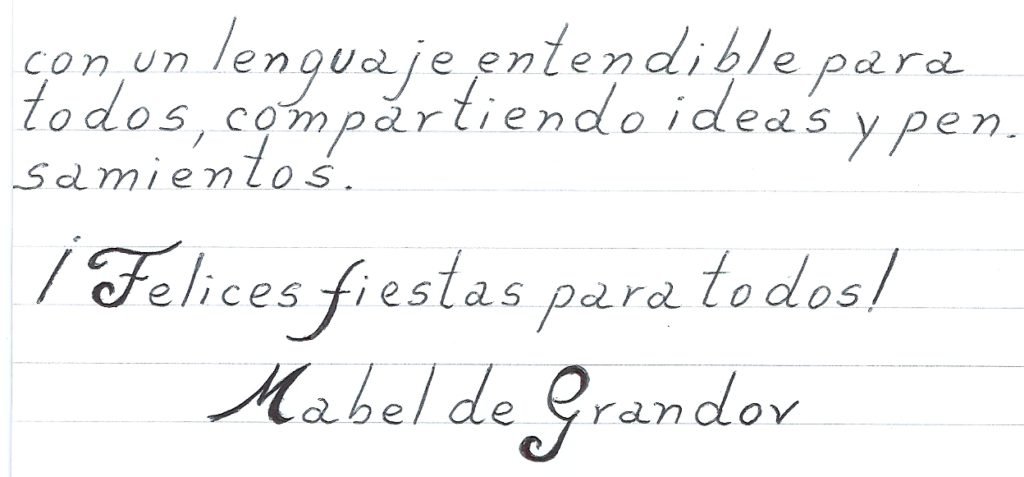 con un lenguaje entendible para
todos, compartiendo ideas y pen-
samientos.
¡Felices fiestas para todos!
Mabel de Grandov